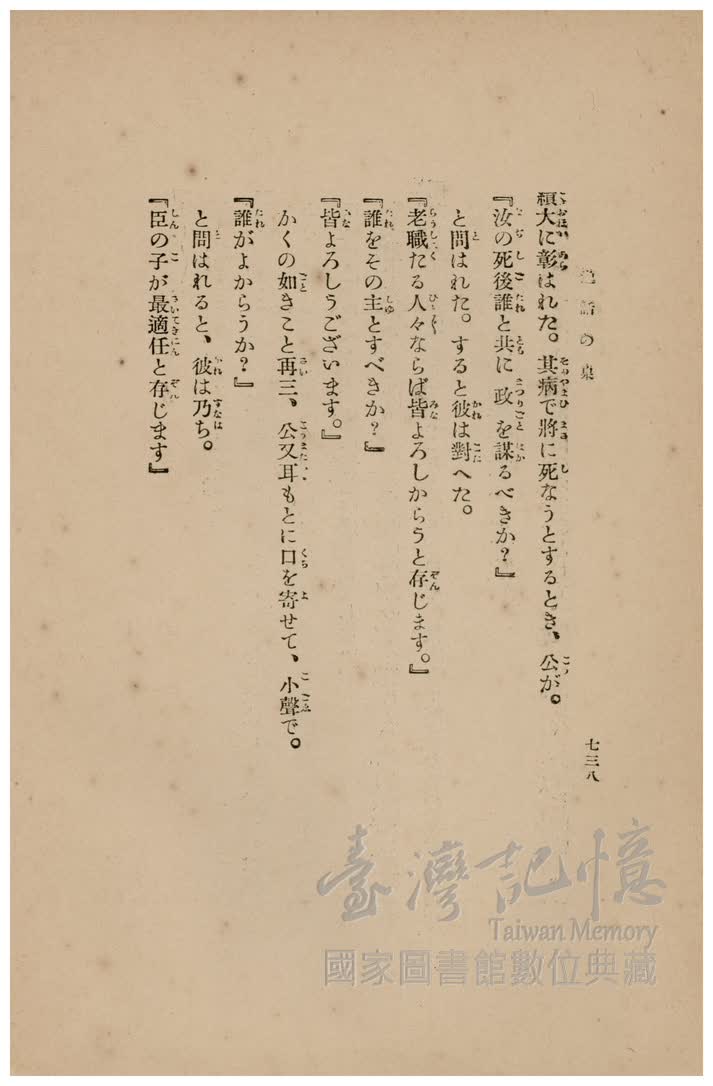 話の泉
七三八
大に彰はれた。其病で將に死なうとするとき、公が。
『汝の死後誰と共に政を謀るべきか?』
と問はれた。すると彼は對へた。
『老職たる人々ならば皆よろしからうと存じます。』
『誰をその主とすべきか?』
『皆よろしうございます。』
かくの如きこと再三、公又耳もとに口を寄せて、小聲で。
『誰がよからうか?』
と問はれると、彼は乃ち。
『臣の子が最適任と存じます』
臺灣記憶
Taiwan Memory
國家圖書館數位典藏